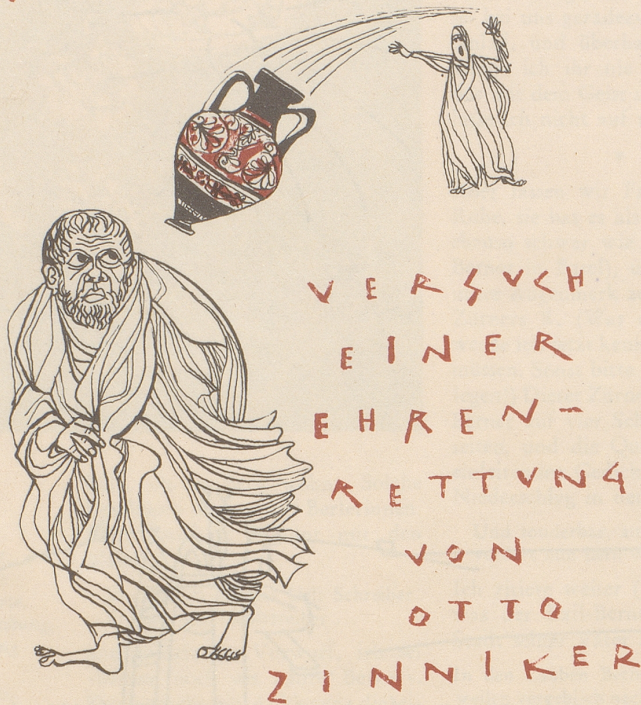 VERSVCH
EINER
EHREN-
RETTVNG
VON
OTTO
ZINNIKER